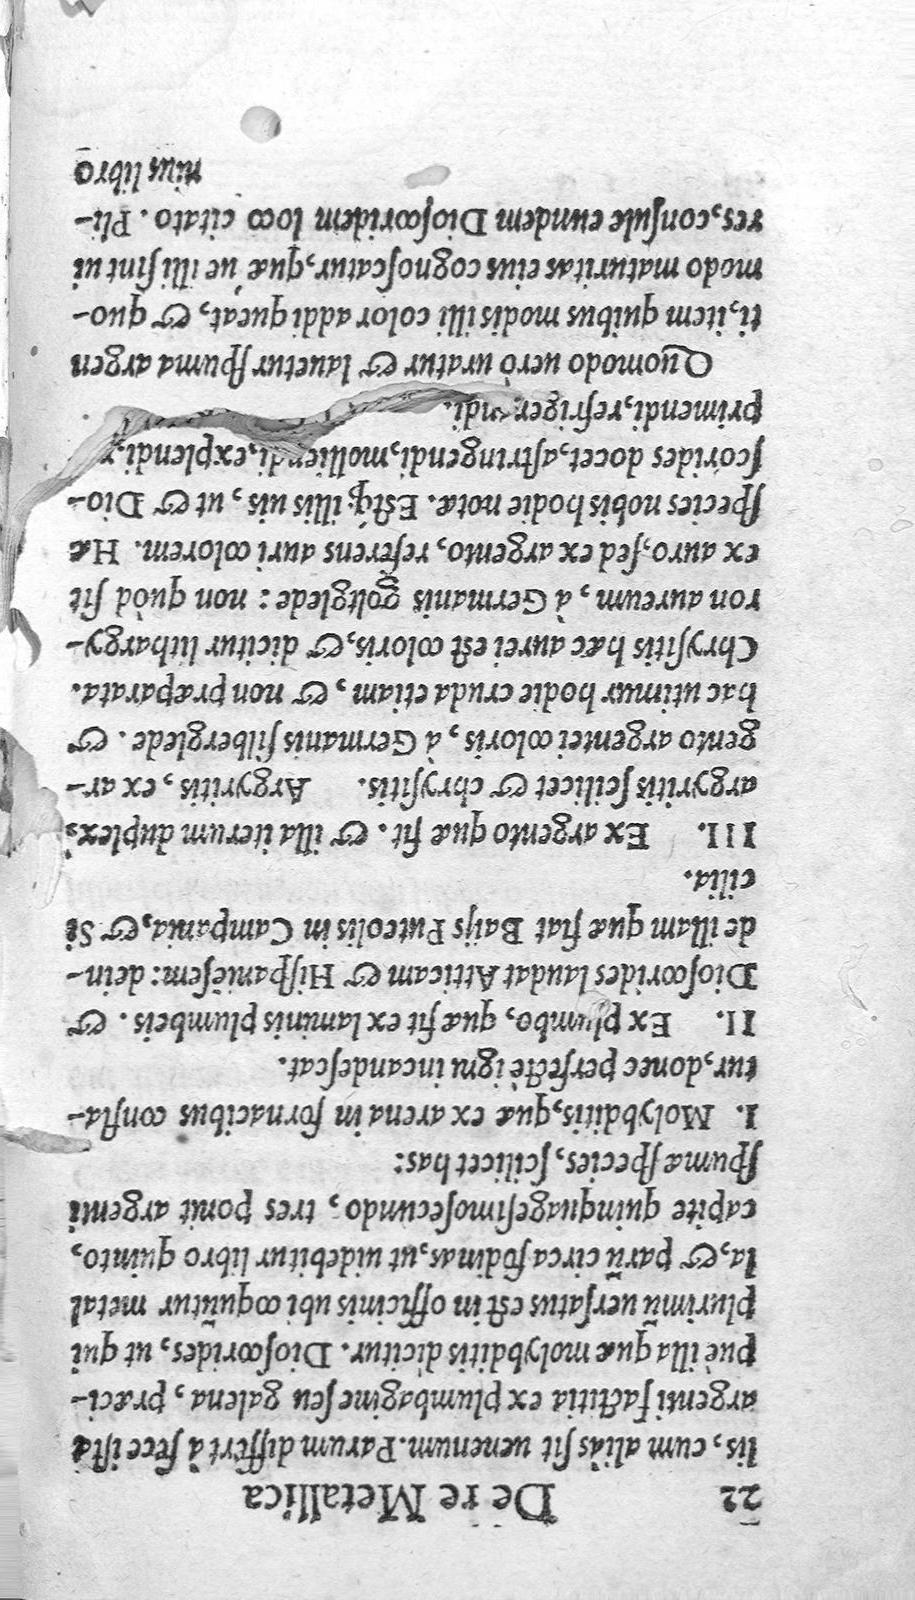 22 De re Metallica
lis, cum aliàs sit uenenum. Parum differt à fęce ista
argenti factitia ex plumbagine seu galena, præci-
puè illa quæ molybditis dicitur. Dioscorides, ut qui
plurimũ uersatus est in officinis ubi coquũtur metal
la, & parũ circa fodinas, ut uidebitur libro quinto,
capite quinquagesimosecundo, tres ponit argenti
spumæ species, scilicet has:
I. Molybditis, quæ ex arena in fornacibus confla-
tur, donec perfectè igni incandescat.
II. Ex plumbo, quæ fit ex laminis plumbeis. &
Dioscorides laudat Atticam & Hispaniẽsem: dein-
de illam quæ fiat Baijs Puteolis in Campania, & Si
cilia.
III. Ex argento quæ fit. & illa iterum duplex,
argyritis scilicet & chrysitis. Argyritis, ex ar-
gento argentei coloris, à Germanis silberglede. &
hac utimur hodie cruda etiam, & non præparata.
Chrysitis hæc aurei est coloris, & dicitur lithargy-
ron aureum, à Germanis goltglede: non quòd sit
ex auro, sed ex argento, referens auri colorem. Hæ
species nobis hodie notæ. Estq́; illis uis, ut & Dio-
scorides docet, astringendi, molliendi, explendi,
primendi, refrigerandi.
Quomodo uerò uratur & lauetur spuma argen
ti, item quibus modis illi color addi queat, & quo-
modo maturitas eius cognoscatur, quæ ue illi sint ui
res, consule eundem Dioscoridem loco citato. Pli-
nius libro